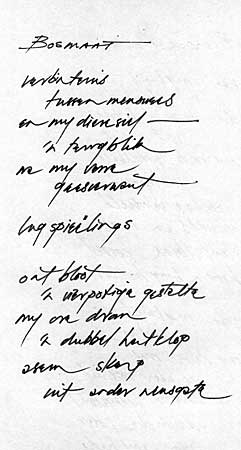 BOSMAAT
verbintenis
tussen menswees
en my dieresiel —
'n terugblik
na my verre
geesverwant
lugspieëlings
ontbloot
'n vierpotige gestalte
my ore
'n dubbel hartklop
asem skerp
uit ander neusgate